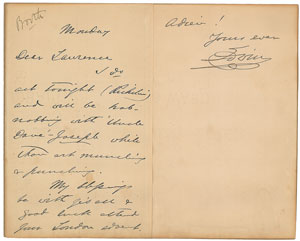 Booth
Monday
Dear Lawrence
I do
act tonight (Richelieu)
and will be hob-
nobbing with "Uncle
Dave"-Joseph while
thou art munching
& punching.
My blessings
be with you all &
good luck attend
your London advent.
Adieu!
Yours ever
Edwin